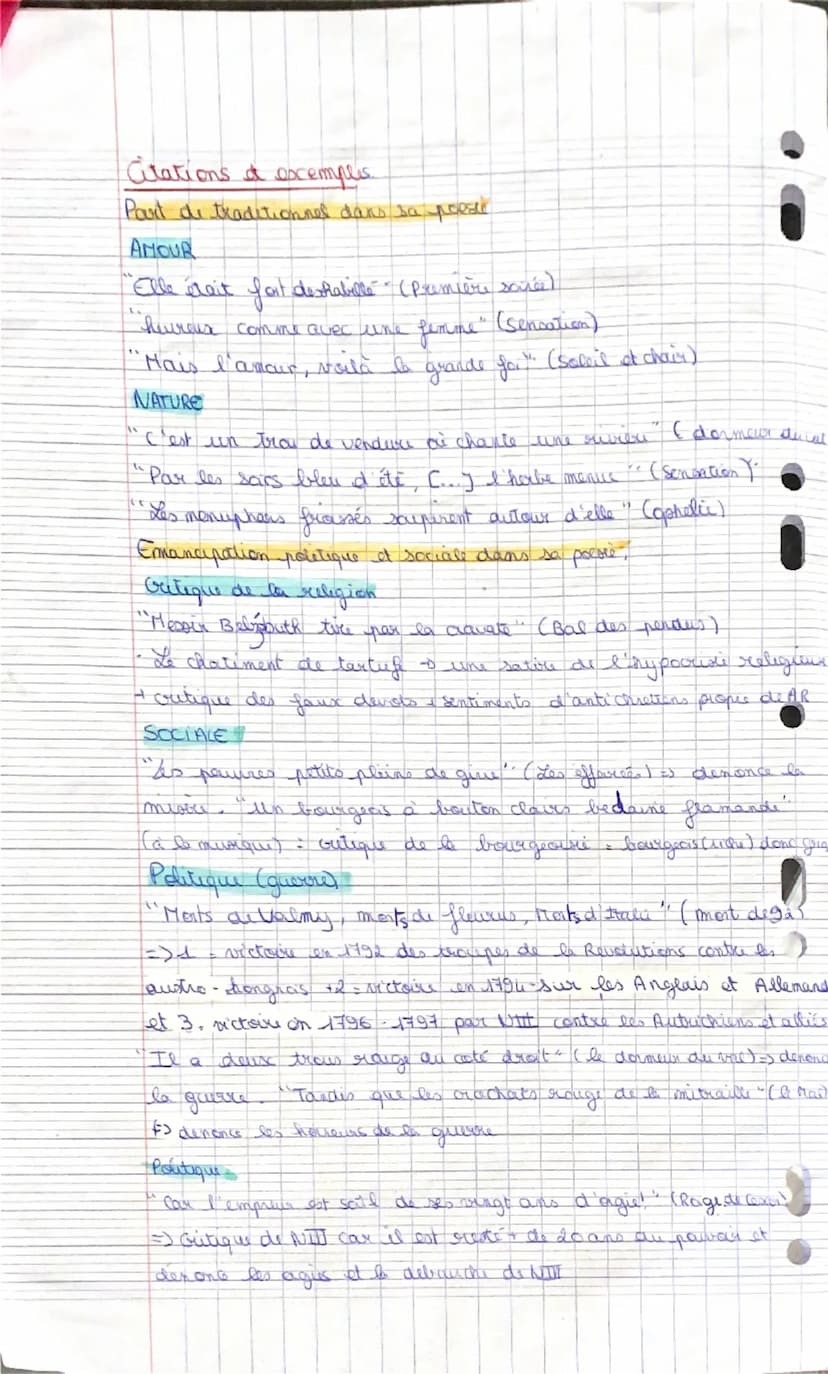 Citations et excemples
Part de traditionnel dans sa poesie
AMOUR
"Elle était fort deshabillé" (Première soirée)
"heureux comme avec une femme" (sensation)
"Mais l'amour, voilà la grande foi" (Soleil et chair)
NATURE
"C'est un trou de verdure où chante une rivière" (dormeur du val
"Par les soirs bleu d'été, [...] l'herbe menue" (Sensation)
"Les nenuphars froissés soupirent autour d'elle" (ophelie)
Emancipation politique et sociale dans sa poesie,
Critique de la religion
"Messir Belzébuth tire par la cravate" (Bal des pendus)
- Le chatiment de tartufe → une satire de l'hypocrisie religieux
+ critique des faux devots + sentiments d'antichretiens propre de AR
SOCIALE
"Les pauvres petits pleins de givre" (Les effarées) => denonce la
misère. "Un bourgeois à bouton clairs bedaine flamande"
(à la musique) = critique de la bourgeoisie = bourgeois (riche) donc
Politique (guerre)
"Morts de Valmy, morts de fleurus, Morts d'Italie" (mort de 92)
=> 1 = victoire en 1792 des troupes de la Revolutions contre les
austro-hongrois +2 = victoire en 1794 sur les Anglais et Allemand
et 3, victoire en 1796-1797 par NIII contre les Autrichiens et alliés
"Il a deux trous rouge au coté droit" (le dormeur du val) => denonc
la guerre. "Tandis que les crachats rouge de la mitraille" (le Mal)
=> denonce les horreurs de la guerre
Politique
"Car l'empreur est soûl de ses vingt ans d'orgie!" (Rage de Cesar)
=> Critique de NIII car il est resté + de 20 ans au pouvoir et
denonce les orgies et la debauche de NIII